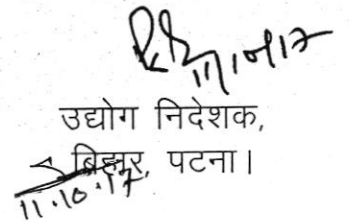 11/10/17
उद्योग निदेशक,
बिहार, पटना।
11.10.17